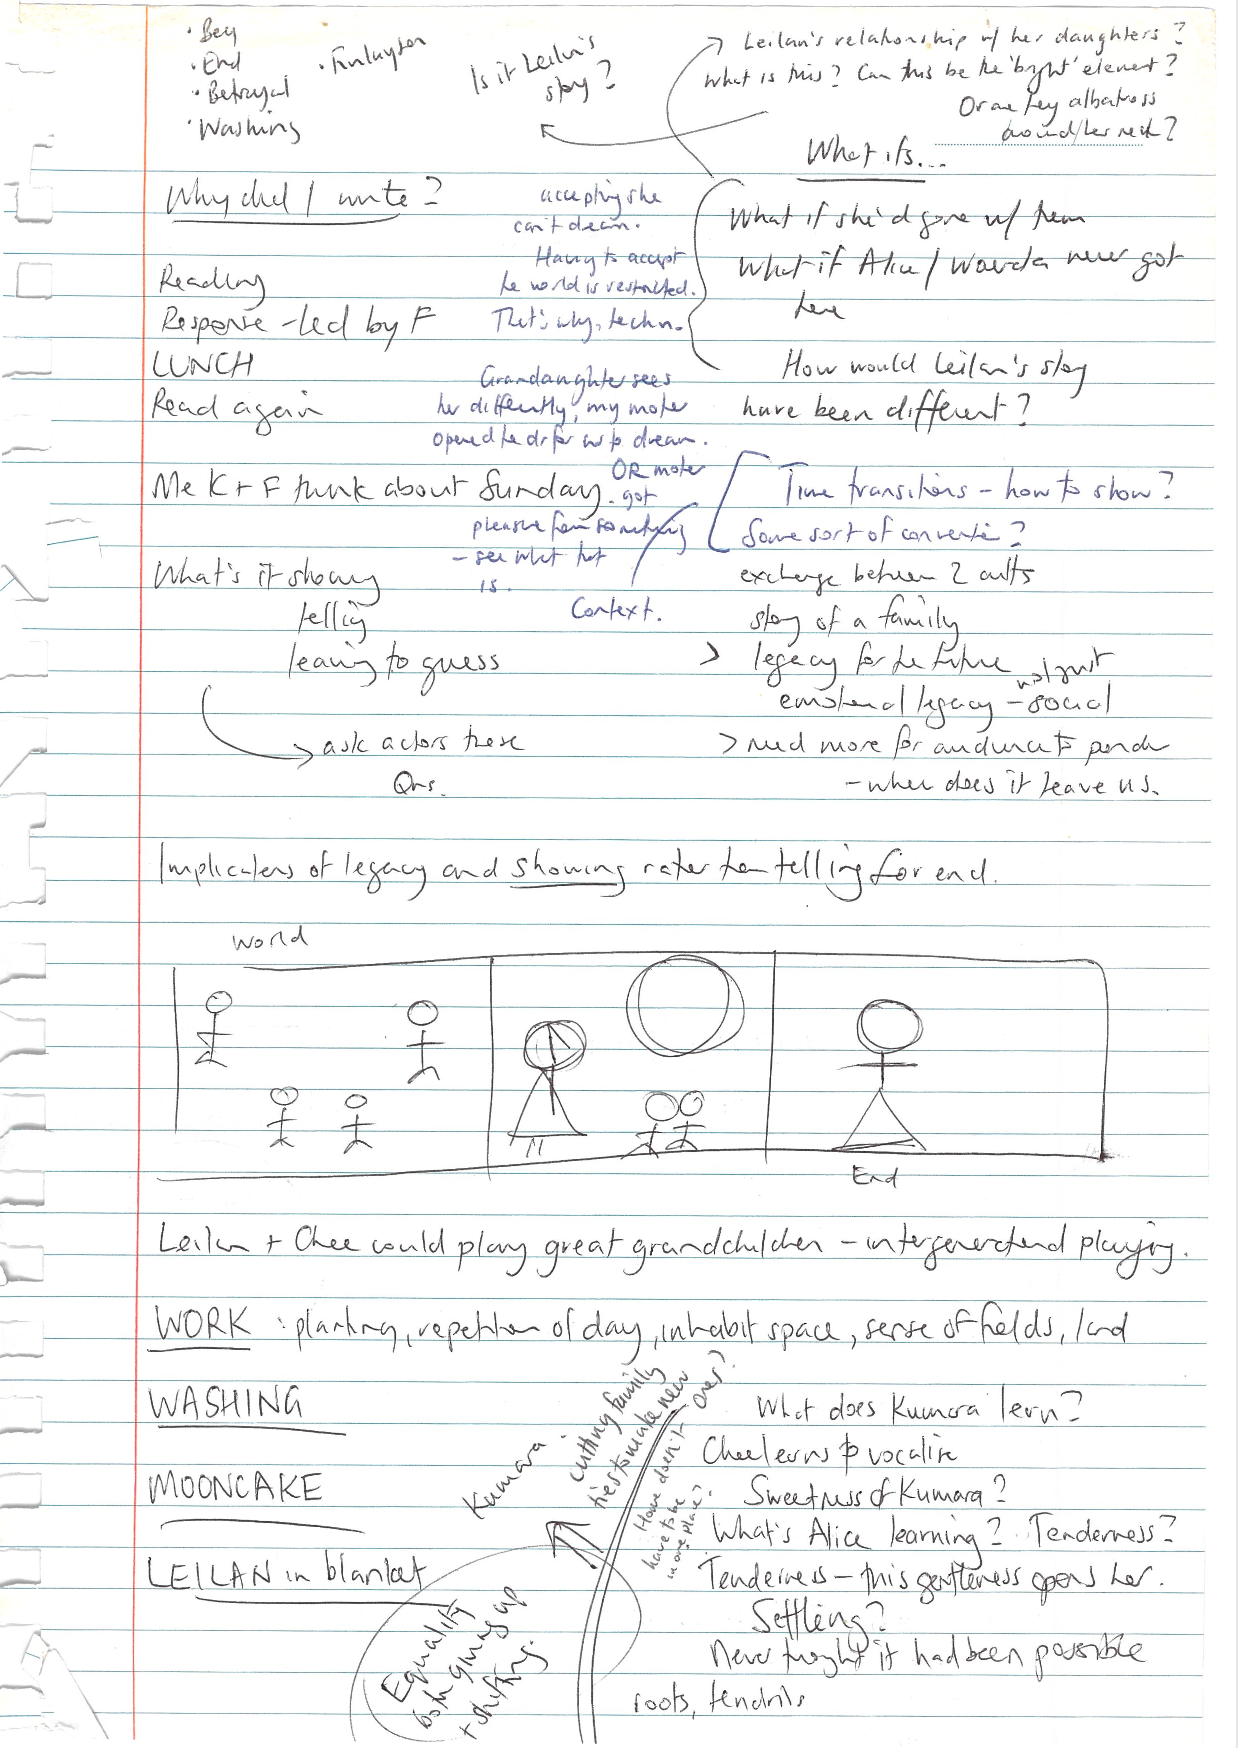 · Beg
· End
· Betrayal
· Washing
Is it Leilan's
story?
Leilan's relationship w/ her daughters?
What is this? Can this be the 'bright' element?
Or are they albatross
around her neck?
What ifs...
Why did I write?
accepting she
can't dream.
Having to accept
the world is restricted.
That's why, techn.
What if she'd gone w/ them
What if Alice / never got
here
How would Leilan's story
have been different?
Reading
Response - led by F
LUNCH
Read again
Grandaughter sees
her differently, my mother
opened the dr for us to dream.
OR mother
got
pleasure from something
- see what that
is.
Context.
Me K + F think about Sunday.
Time transitions - how to show?
Some sort of convention?
exchange between 2 cults
story of a family
> legacy for the future
emotional legacy - not just
social
> need more for audience to ponder
- where does it leave us.
What's it showing
telling
leaving to guess
ask actors these
Qns.
Implications of legacy and showing rather than telling for end.
World
End
Leilan + Chee could play great grandchildren - intergenerational playing.
WORK : planting, repetition of day, inhabit space, sense of fields, land
WASHING
MOONCAKE
LEILAN in blanket
Kumara
cutting family
ties to make new
ones?
Home doesn't
have to be
in one place?
Equality
both giving up
+ shifting.
What does Kumara learn?
Chee learns to vocalise
Sweetness of Kumara?
What's Alice learning? Tenderness?
Tenderness - this gentleness opens her.
Settling?
Never thought it had been possible
roots, tendrils